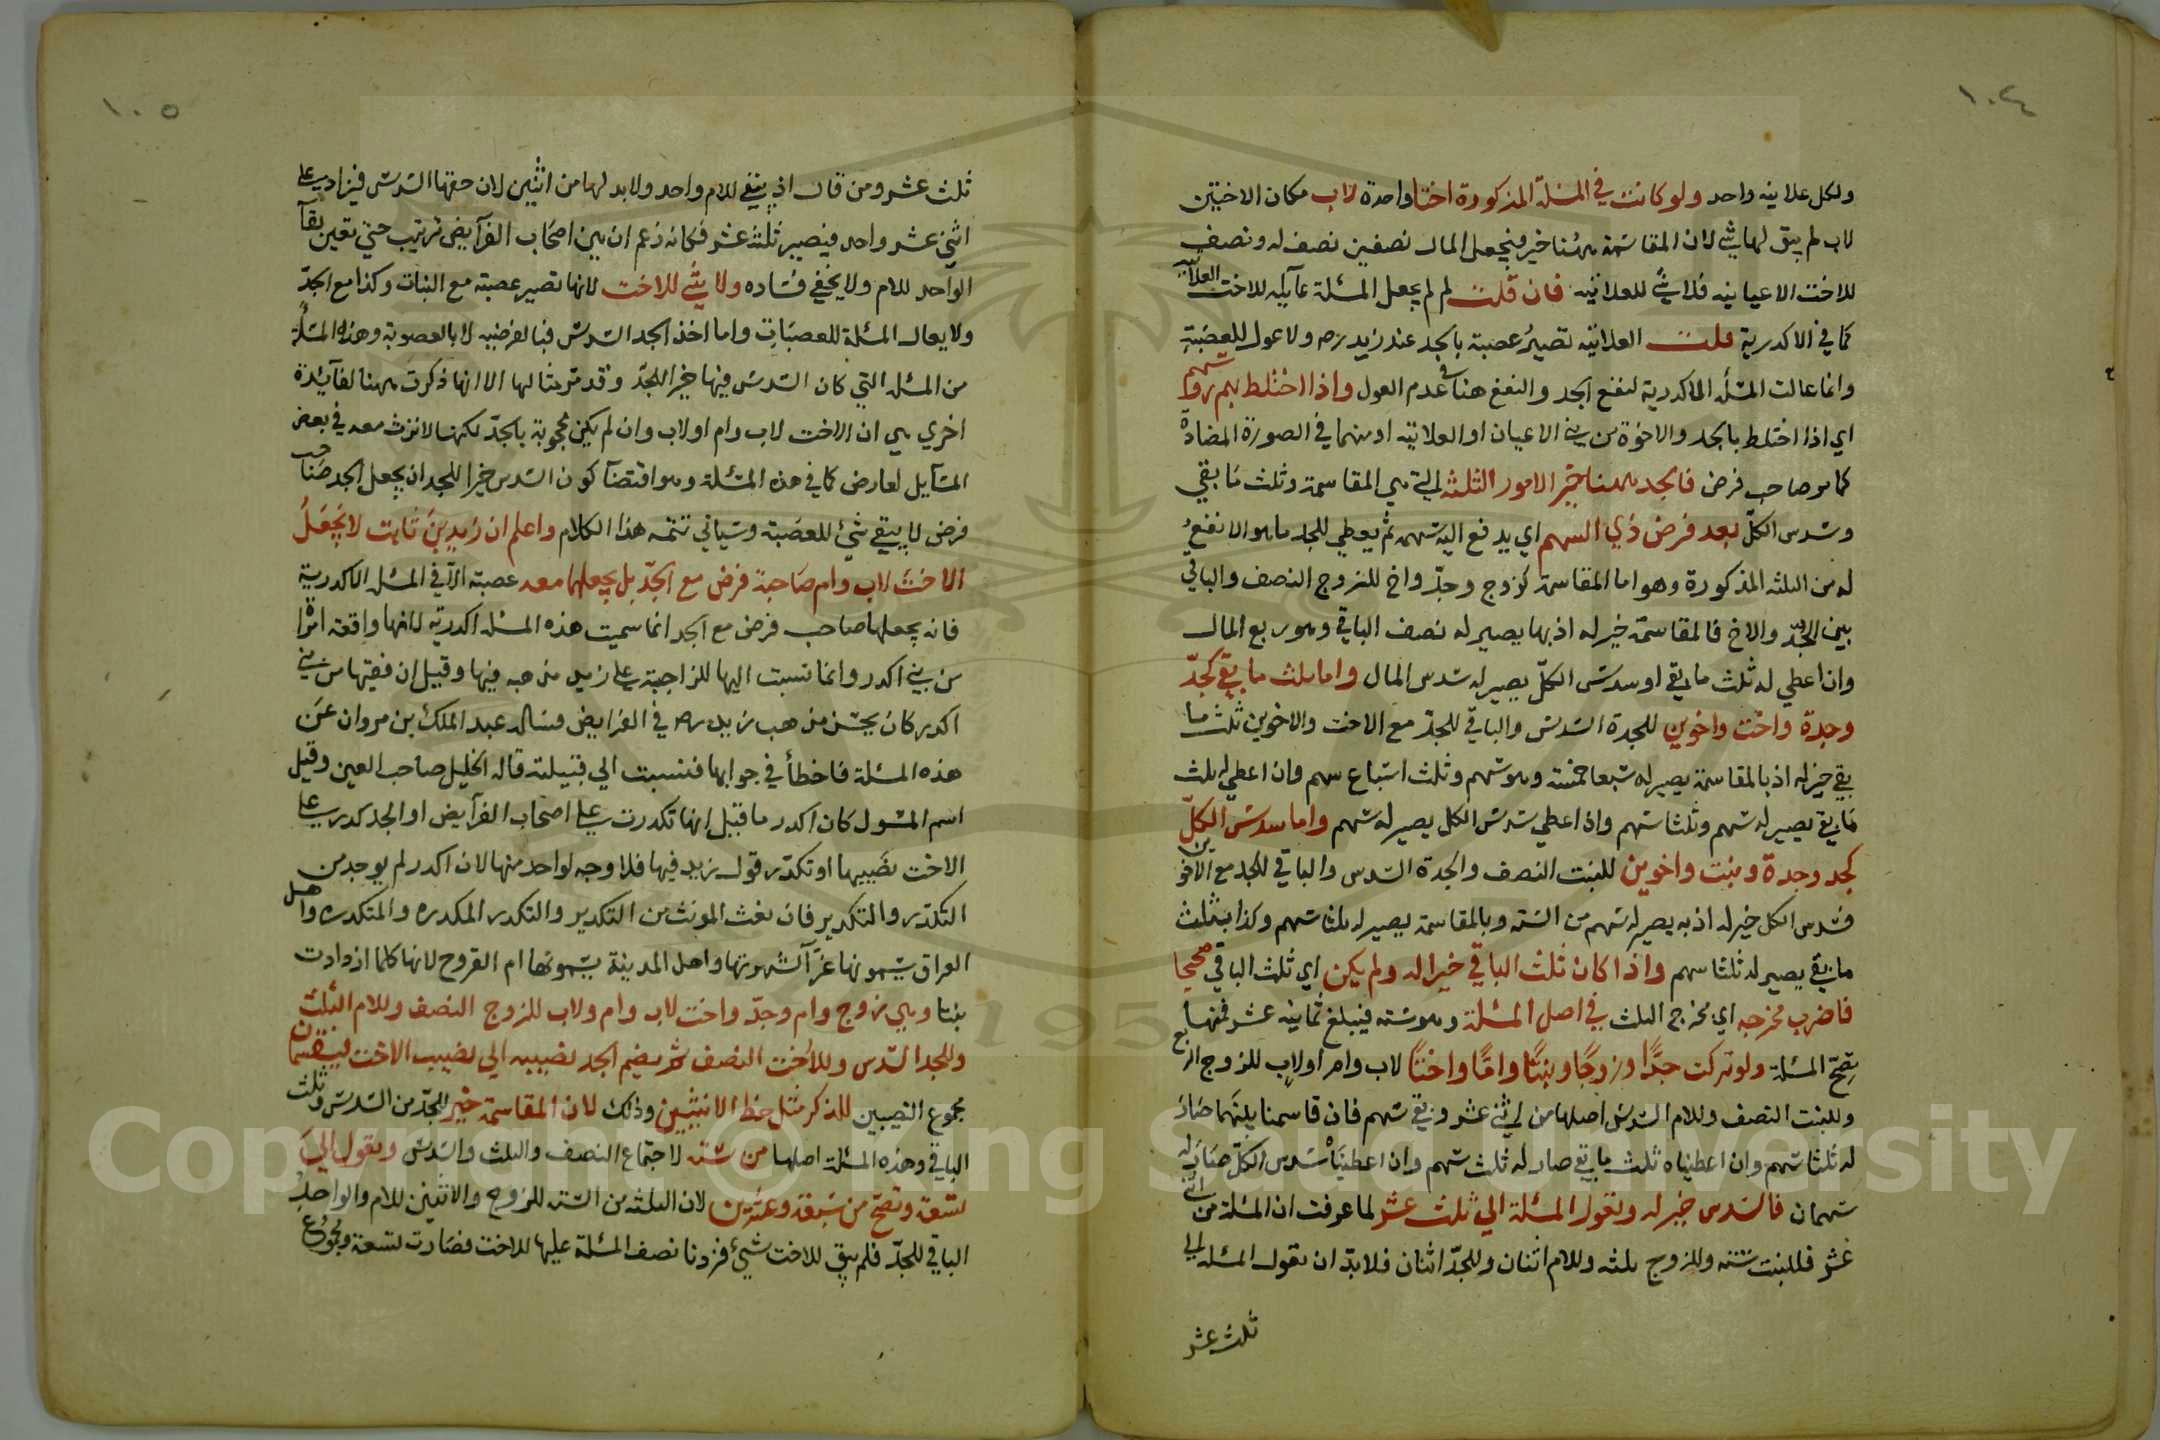 ١٠٤
ولكل علاتيه واحد ولو كانت في المسئلة المذكورة اختا واحدة لاب مكان الاختين
لاب لم يبق لها شئ لان المقاسمة ههنا خير فيجعل المال نصفين نصف له ونصف
للاخت الاعيانيه فلا شئ للعلاتيه فان قلت لم لم يجعل المسئلة عآيله للاخت العلاتيه
كما في الاكدرية قلت العلاتيه تصير عصبة بالجد عند زيد رح ولا عول للعصبة
وانما عالت المسئلة الاكدرية لنفع الجد والنفع هنا في عدم العول واذا اختلط بهم ذو سهم
اي اذا اختلط بالجد والاخوة من بني الاعيان او العلاتيه او منهما في الصورة المضادة
كما هو صاحب فرض فالجد ههنا خير الامور الثلثه التي هي المقاسمة وثلث ما بقي
وسدس الكل بعد فرض ذي السهم اي يدفع اليه سهمه ثم يعطي للجد ما هو الانفع
له من الثلثه المذكورة وهو اما المقاسمة كزوج وجد واخ للزوج النصف والباقي
بين الجد والاخ فالمقاسمة خير له اذ بها يصير له نصف الباقي وهو ربع المال
وان اعطي له ثلث ما بقي او سدس الكل يصير له سدس المال واما ثلث ما بقي كجد
وجدة واخت واخوين للجدة السدس والباقي للجد مع الاخت والاخوين ثلث ما
بقي خير له اذ بالمقاسمة يصير له سبعا خمسة وهو سهم وثلث اسباع سهم وان اعطي له ثلث
ما بقي يصير له سهم وثلثا سهم واذا اعطي سدس الكل يصير له سهم واما سدس الكل
كجد وجدة وبنت واخوين للبنت النصف والجدة السدس والباقي للجد مع الاخوين
فسدس الكل خير له اذ به يصير له سهم من الستة وبالمقاسمة يصير له ثلثا سهم وكذا بثلث
ما بقي يصير له ثلثا سهم واذا كان ثلث الباقي خيرا له ولم يكن اي ثلث الباقي صحيحا
فاضرب مخرجه اي مخرج الثلث في اصل المسئلة وهو سته فيبلغ ثمانية عشر فمنها
تصح المسئلة ولو تركت جدا وزوجا وبنتا واما واختا لاب وام او لاب للزوج الربع
وللبنت النصف وللام السدس اصلها من اثني عشر وبقي سهم فان قاسمنا بينهما صار
له ثلثا سهم وان اعطيناه ثلث ما بقي صار له ثلث سهم وان اعطيناه سدس الكل صار له
سهمان فالسدس خير له وتعول المسئلة الي ثلث عشر لما عرفت ان المسئلة من اثني
عشر فللبنت ستة وللزوج ثلثه وللام اثنان وللجد اثنان فلابد ان تعول المسئله الي
ثلث عشر
١٠٥
ثلث عشر ومن قال اذ يبقي للام واحد ولابد لها من اثنين لان حقها السدس فيزاد علي
اثني عشر واحد فيصير ثلثة عشر فكانه زعم ان بين اصحاب الفرآيض ترتيب حتي تعين بقآ
الواحد للام ولا يخفي فساده ولا شئ للاخت لانها تصير عصبة مع البنات وكذا مع الجد
ولا يعال المسئلة للعصبات واما اخذ الجد السدس فبالفرضيه لا بالعصوبة وهذه المسئلة
من المسئلة التي كان السدس فيها خيرا للجد وقد مر مثالها الا انها ذكرت ههنا لفآئدة
اخري هي ان الاخت لاب وام او لاب وان لم يكن محجوبة بالجد لكنها لا ترث معه في بعض
المسآيل لعارض كما في هذه المسئلة وهو اقتضآ كون السدس خيرا للجد ان يجعل الجد صاحب
فرض لا يبقي شئ للعصبة وسياتي تتمه هذا الكلام واعلم ان زيد بن ثابت لا يجعل
الاخت لاب وام صاحبة فرض مع الجد بل يجعلها معه عصبة الا في المسئلة الاكدرية
فانه يجعلها صاحب فرض مع الجد انما سميت هذه المسئلة اكدرية لانها واقعة امراة
من بني اكدر وانما نسبت اليها للزاجية علي زيد مذهبه فيها وقيل ان فقيها من بني
اكدر كان يحسن مذهب زيد رح في الفرايض فساله عبد الملك بن مروان عن
هذه المسئلة فاخطأ في جوابها فنسبت الي قبيلته قاله الخليل صاحب العين وقيل
اسم المسئول كان اكدر ما قبل انها تكدرت علي اصحاب الفرآيض او الجد كدر علي
الاخت نصيبها او تكدر قول زيد فيها فلا وجه لواحد منها لان اكدر لم يوجد من
التكدر والتكدير فان نعت المونث من التكدير والتكدر المكدره والمتكدره واهل
العراق يسمونها غرآ لشهرتها واهل المدينة يسمونها ام الفروح لانها كلما ازدادت
بنتا وهي زوج وام وجد واخت لاب وام ولاب للزوج النصف وللام الثلث
وللجد السدس وللاخت النصف ثم يضم الجد نصيبه الي نصيب الاخت فيقسمان
مجموع النصيبين للذكر مثل حظ الانثيين وذلك لان المقاسمة خير للجد من السدس وثلث
الباقي وهذه المسئلة اصلها من سته لاجتماع النصف والثلث والسدس وتعول الي
تسعة وتصح من سبعة وعشرين لان الثلثه من السته للزوج والاثنين للام والواحد
الباقي للجد فلم يبق للاخت شئ فزدنا نصف المسئلة عليها للاخت فصارت تسعة ومجموع